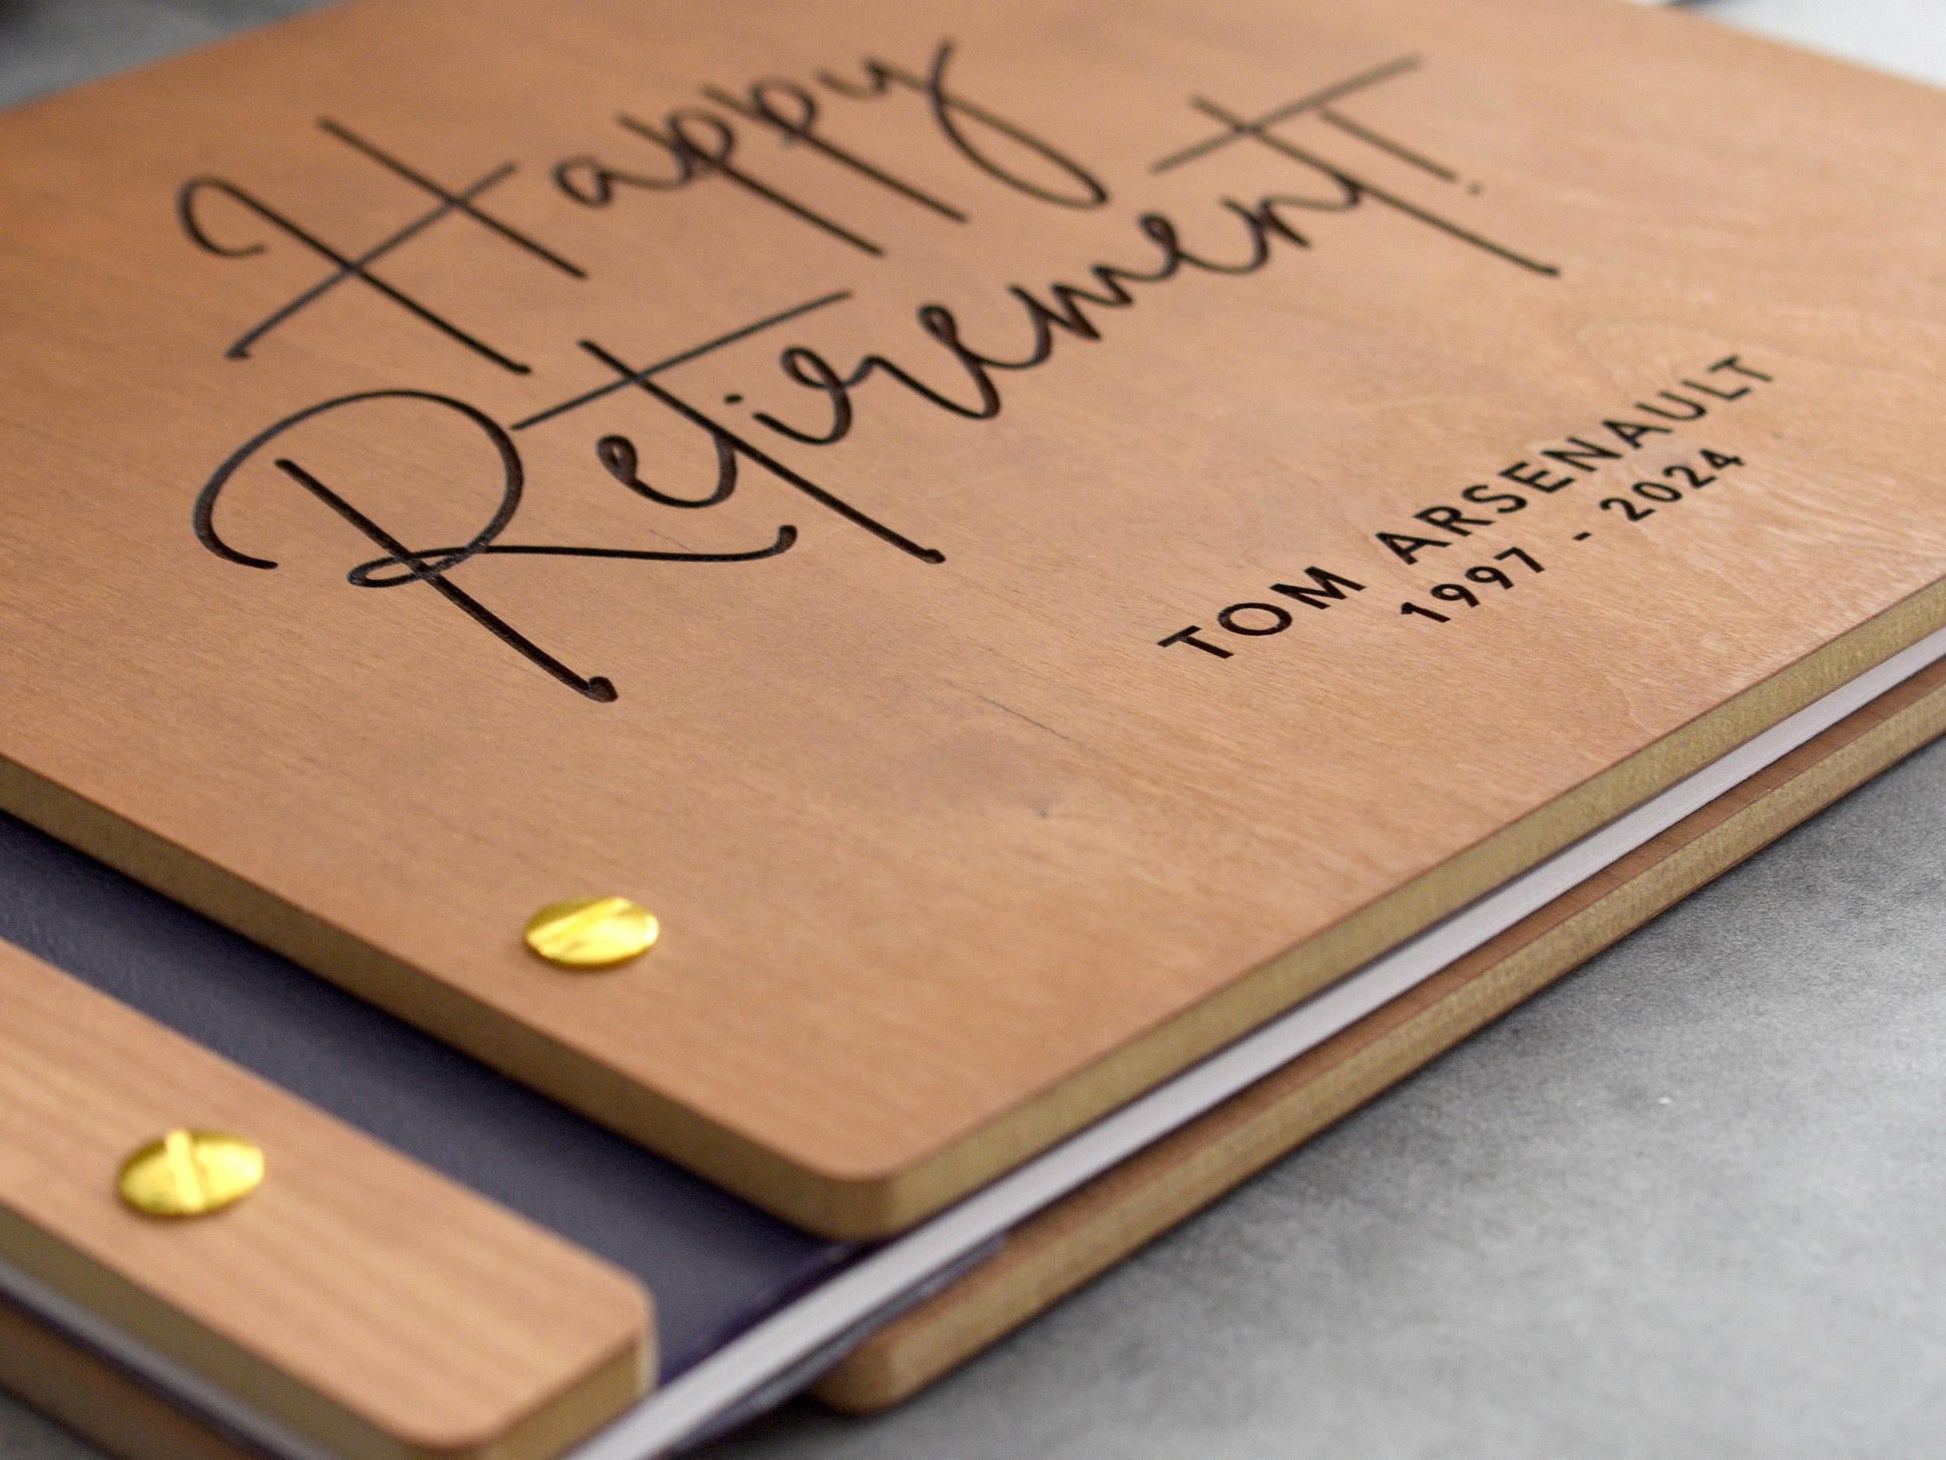 Happy
Retirement!
TOM ARSENAULT
1997 - 2024